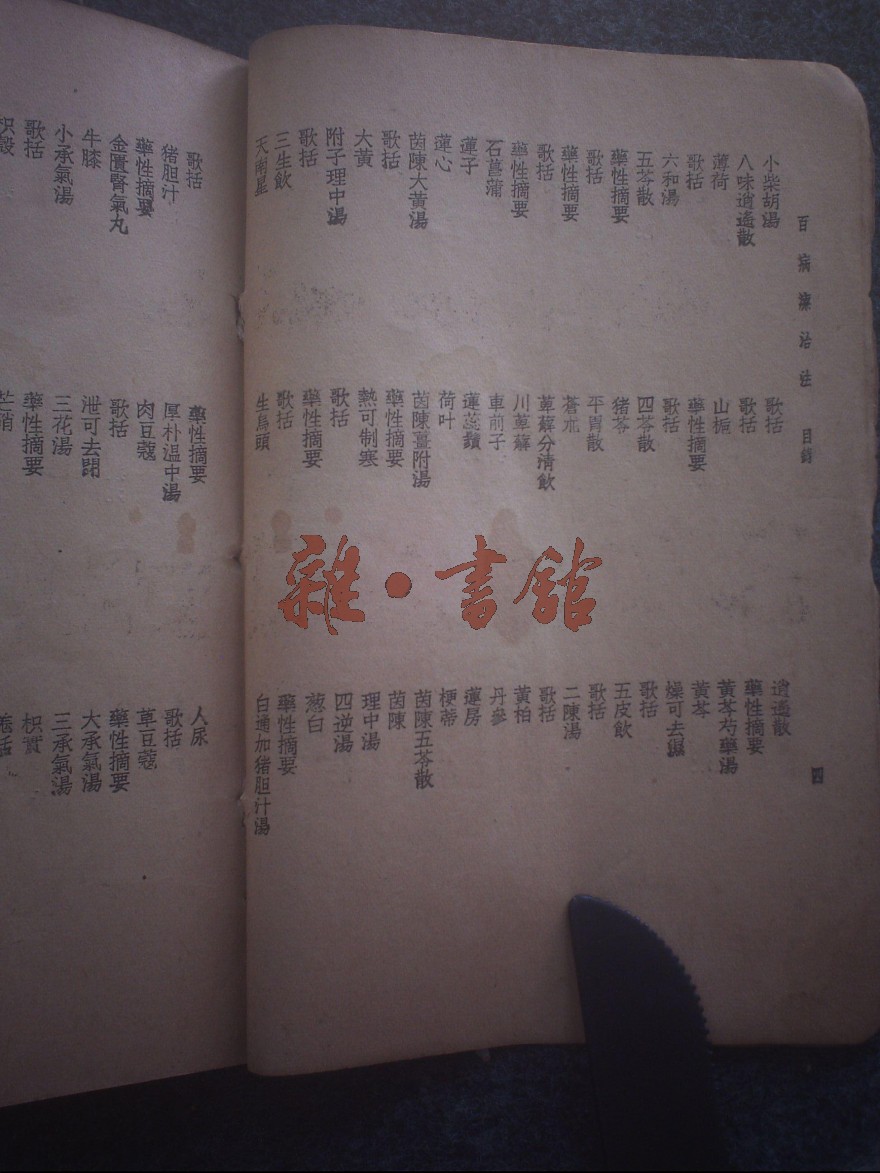 百病療治法 目錄 四
小柴胡湯 歌括 逍遙散
八味逍遙散 歌括 藥性摘要
薄荷 山梔 黃芩芍藥湯
歌括 藥性摘要 黃芩
六和湯 歌括 燥可去濕
五苓散 四苓散 歌括
藥性摘要 猪苓 五皮飲
歌括 平胃散 歌括
藥性摘要 蒼朮 二陳湯
歌括 萆薢分清飲 歌括
藥性摘要 川萆薢 黃柏
石菖蒲 車前子 丹參
蓮子 蓮蕊鬚 蓮房
蓮心 荷叶 梗蒂
茵陳大黃湯 茵陳薑附湯 茵陳五苓散
歌括 藥性摘要 茵陳
大黃 熱可制寒 理中湯
附子理中湯 歌括 四逆湯
歌括 藥性摘要 葱白
三生飲 歌括 藥性摘要
天南星 生烏頭 白通加猪胆汁湯
歌括 藥性摘要 人尿
猪胆汁 厚朴温中湯 歌括
藥性摘要 肉豆蔻 草豆蔻
金匱腎氣丸 歌括 藥性摘要
牛膝 泄可去閉 大承氣湯
小承氣湯 三花湯 三承氣湯
歌括 藥性摘要 枳實
枳殼 芒硝
雜·書館